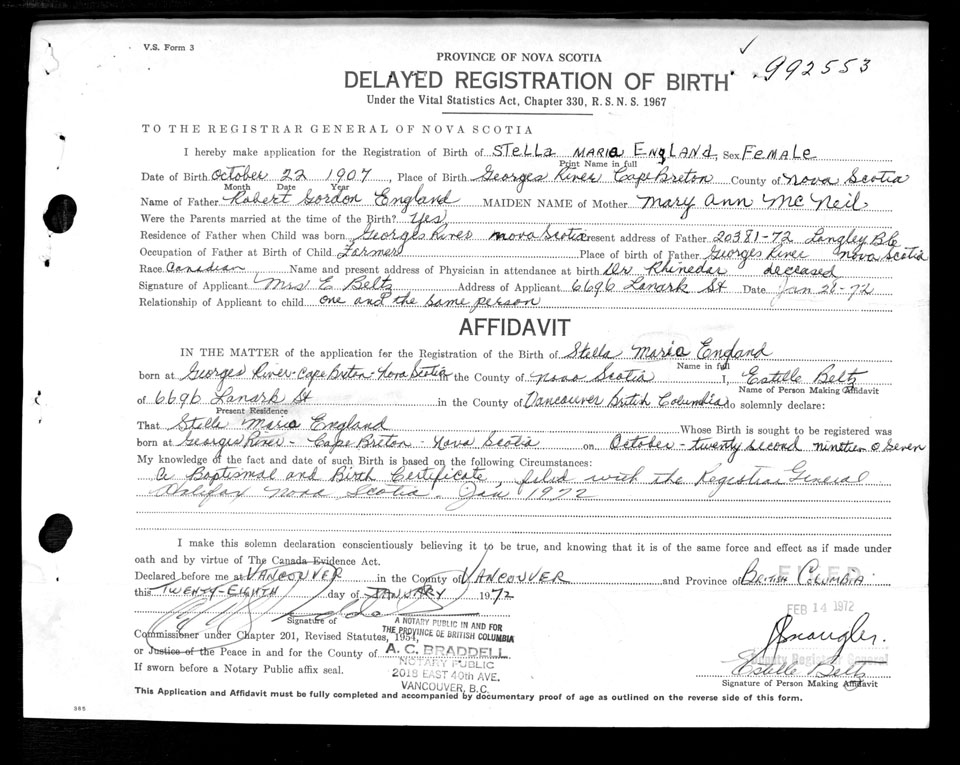 V.S. Form 3
PROVINCE OF NOVA SCOTIA
992553
DELAYED REGISTRATION OF BIRTH
Under the Vital Statistics Act, Chapter 330, R.S.N.S. 1967
TO THE REGISTRAR GENERAL OF NOVA SCOTIA
I hereby make application for the Registration of Birth of STELLA MARIA ENGLAND, Sex FEMALE
Print Name in full
Date of Birth October 22 1907, Place of Birth Georges River Cape Breton County of Nova Scotia
Month Date Year
Name of Father Robert Gordon England MAIDEN NAME of Mother Mary Ann McNeil
Were the Parents married at the time of the Birth? Yes
Residence of Father when Child was born Georges River Nova Scotia Present address of Father 20381-72 Langley B.C.
Occupation of Father at Birth of Child Farmer Place of birth of Father Georges River Nova Scotia
Race Canadian Name and present address of Physician in attendance at birth Dr Rhinedar deceased
Signature of Applicant Mrs E Beltz Address of Applicant 6696 Lanark St Date Jan 28-72
Relationship of Applicant to child one and the same person
AFFIDAVIT
IN THE MATTER of the application for the Registration of the Birth of Stella Maria England
Name in full
born at Georges River-Cape Breton-Nova Scotia in the County of Nova Scotia I, Estelle Beltz
Name of Person Making Affidavit
of 6696 Lanark St in the County of Vancouver British Columbia do solemnly declare:
Present Residence
That Stella Maria England Whose Birth is sought to be registered was
born at Georges River - Cape Breton - Nova Scotia on October - twenty second nineteen o Seven
My knowledge of the fact and date of such Birth is based on the following Circumstances:
a Baptismal and Birth Certificate, filed with the Registrar General
Halifax Nova Scotia. Jan 1972
I make this solemn declaration conscientiously believing it to be true, and knowing that it is of the same force and effect as if made under
oath and by virtue of The Canada Evidence Act.
Declared before me at VANCOUVER in the County of VANCOUVER and Province of British Columbia
FILED
this TWENTY-EIGHTH day of JANUARY 1972
FEB 14 1972
Signature of
A NOTARY PUBLIC IN AND FOR
THE PROVINCE OF BRITISH COLUMBIA
Commissioner under Chapter 201, Revised Statutes, 1954,
or Justice of the Peace in and for the County of A. C. BRADDELL
NOTARY PUBLIC
Registrar General
If sworn before a Notary Public affix seal.
2018 EAST 40th AVE.
VANCOUVER, B.C.
Estelle Beltz
Signature of Person Making Affidavit
This Application and Affidavit must be fully completed and accompanied by documentary proof of age as outlined on the reverse side of this form.
385